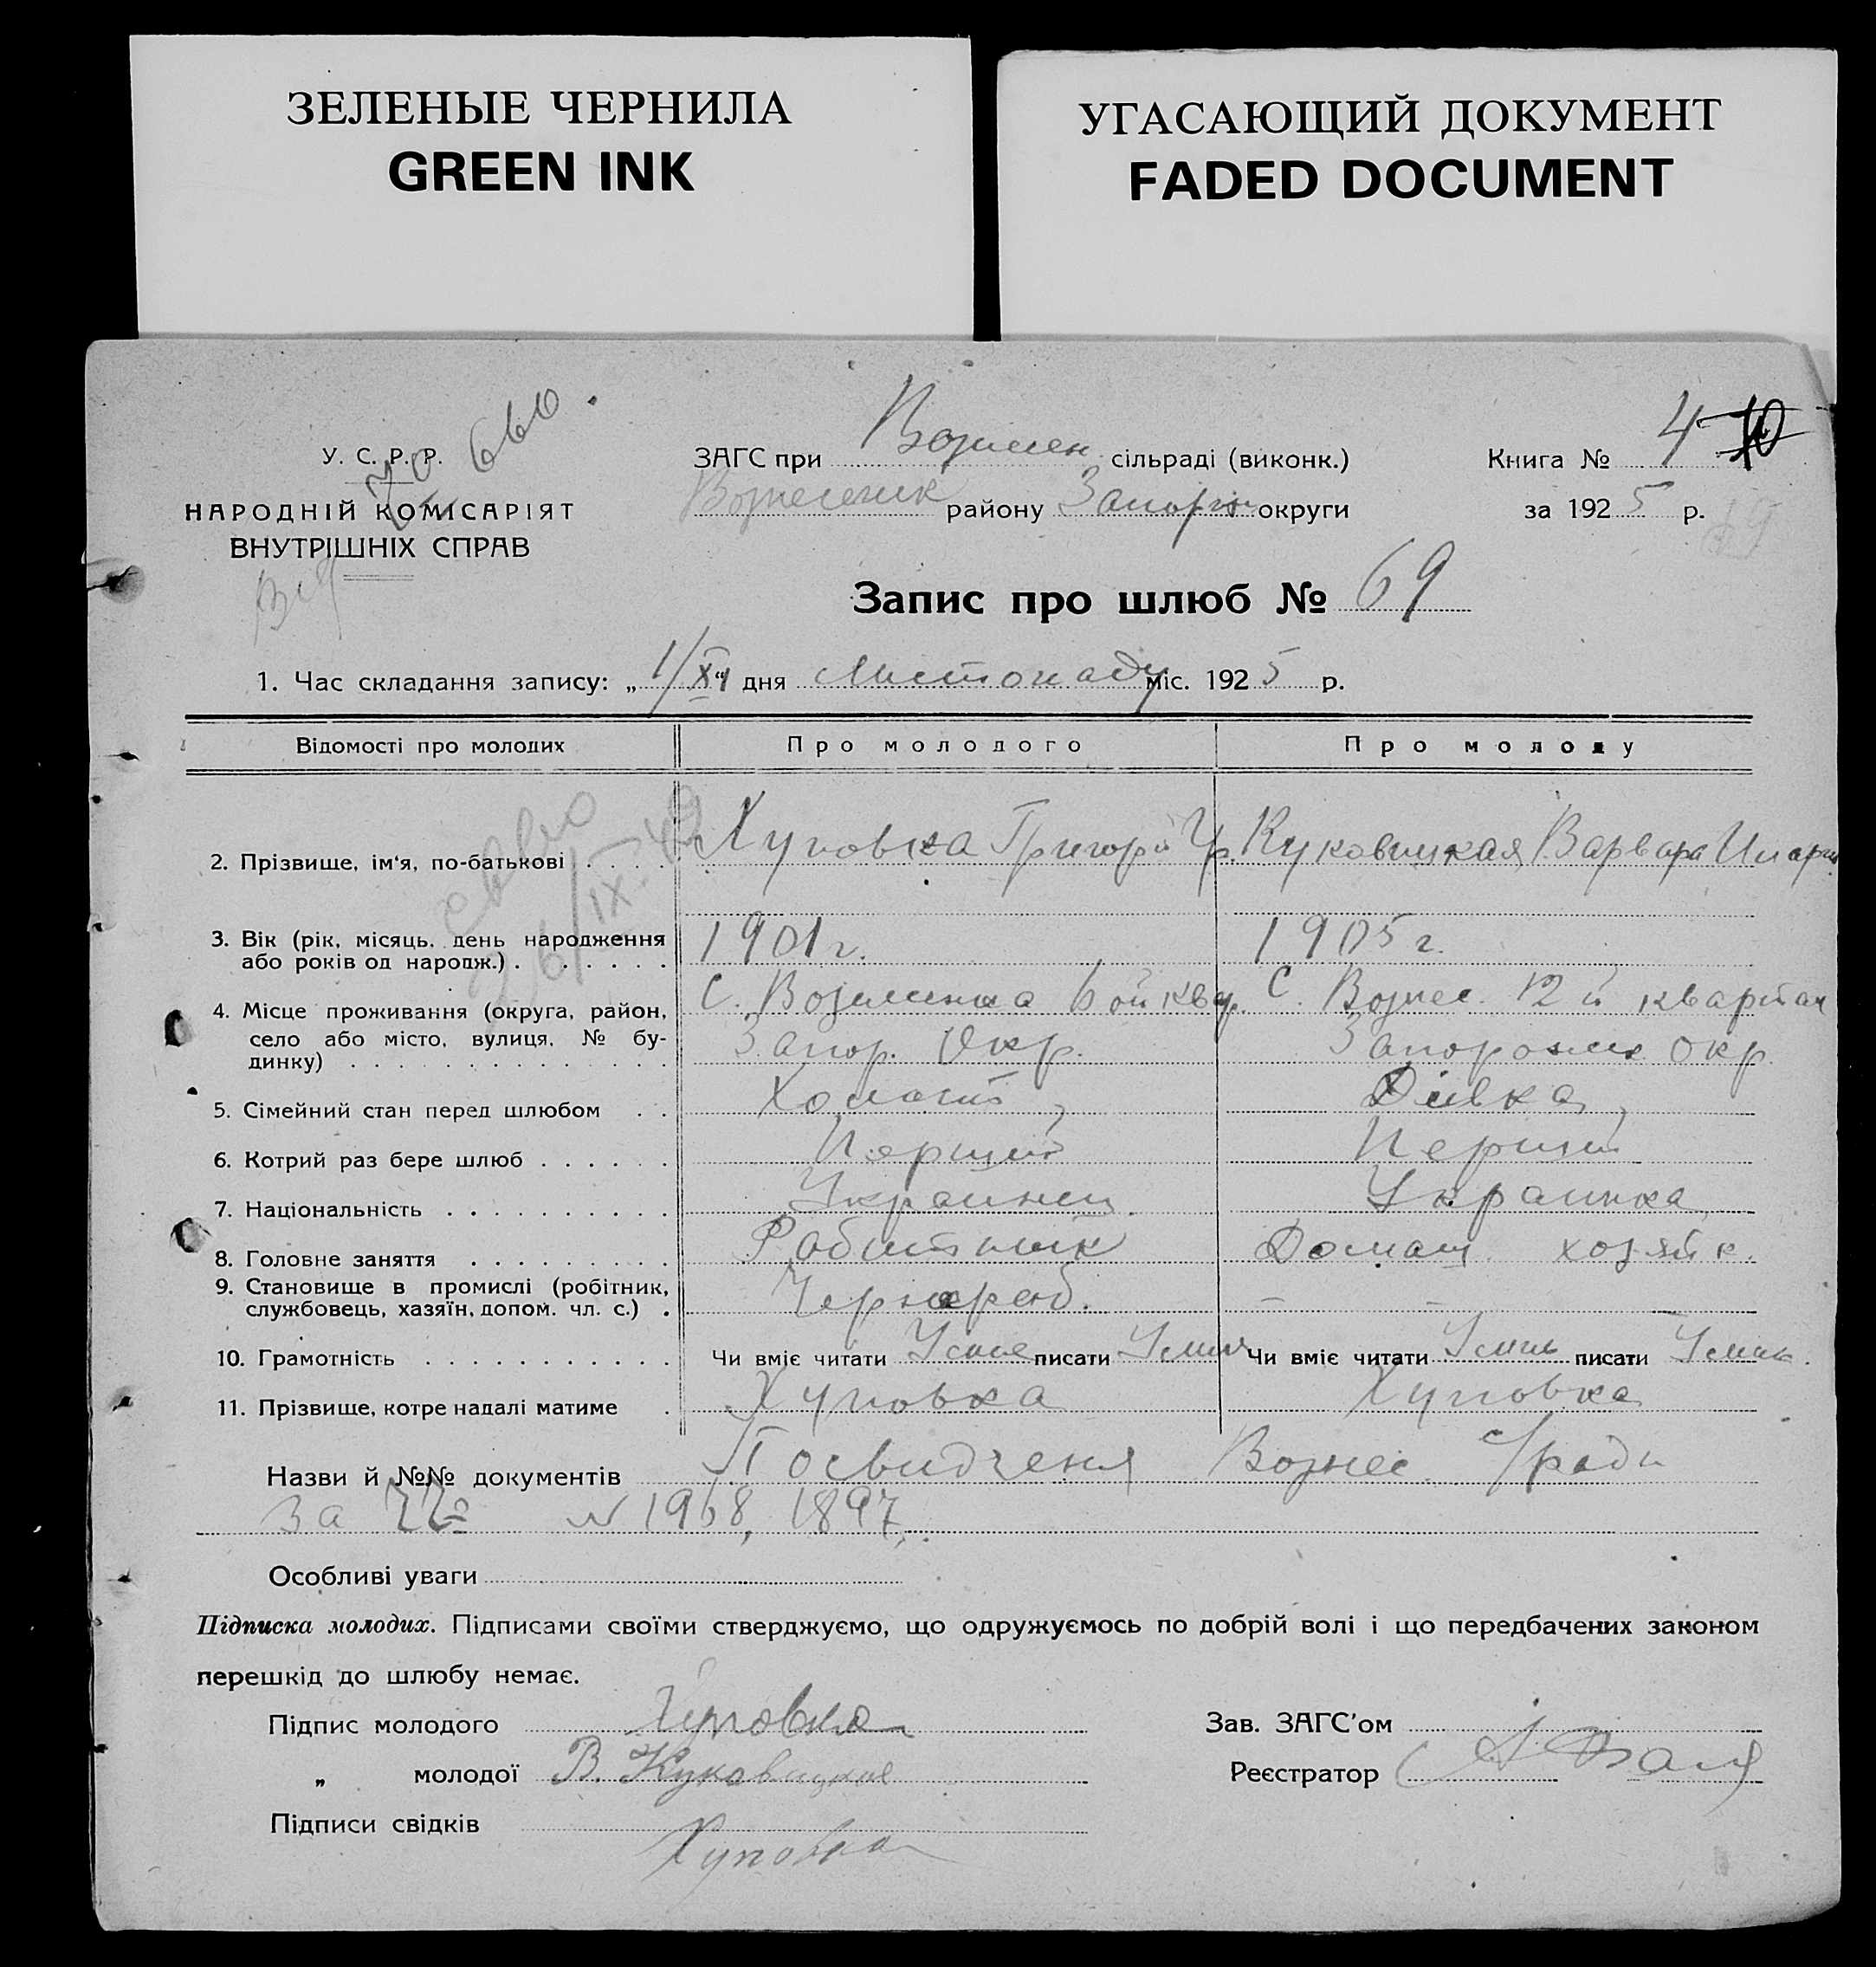 ЗЕЛЕНЫЕ ЧЕРНИЛА
GREEN INK
УГАСАЮЩИЙ ДОКУМЕНТ
FADED DOCUMENT
У. С. Р. Р.
НАРОДНІЙ КОМІСАРІЯТ
ВНУТРІШНІХ СПРАВ
ЗАГС при Вознесен сільраді (виконк.)
району Запоріз округи
Книга № 4
за 1925 р.
Запис про шлюб № 69
1. Час складання запису: „1/XI“ дня Листопаду міс. 1925 р.
Відомості про молодих Про молодого Про молоду
2. Прізвище, ім'я, по-батькові Хуповка Григорій Гр. Куковицкая Варвара
3. Вік (рік, місяць, день народження або років од народж.) 1901 г. 1905 г.
4. Місце проживання (округа, район, село або місто, вулиця, № будинку) С. Вознесенка 6ой квар. С. Вознес. 12й квартал
Запор. Окр. Запорожск. Окр.
5. Сімейний стан перед шлюбом Холост, Дівка,
6. Котрий раз бере шлюб Перший Перший
7. Національність Украинец. Украинка
8. Головне заняття Робитник Домаш. хозяйк.
9. Становище в промислі (робітник, службовець, хазяїн, допом. чл. с.) Чернораб. – –
10. Грамотність Чи вміє читати писати Чи вміє читати писати
11. Прізвище, котре надалі матиме Хуповка Хуповка
Назви й №№ документів Посвидченя Вознес. С/ради
за № 1968, 1897
Особливі уваги
Підписка молодих. Підписами своїми стверджуємо, що одружуємось по добрій волі і що передбачених законом
перешкід до шлюбу немає.
Підпис молодого Хуповка
„ молодої В. Куковицкая
Підписи свідків
Хуповка
Зав. ЗАГС'ом
Реєстратор